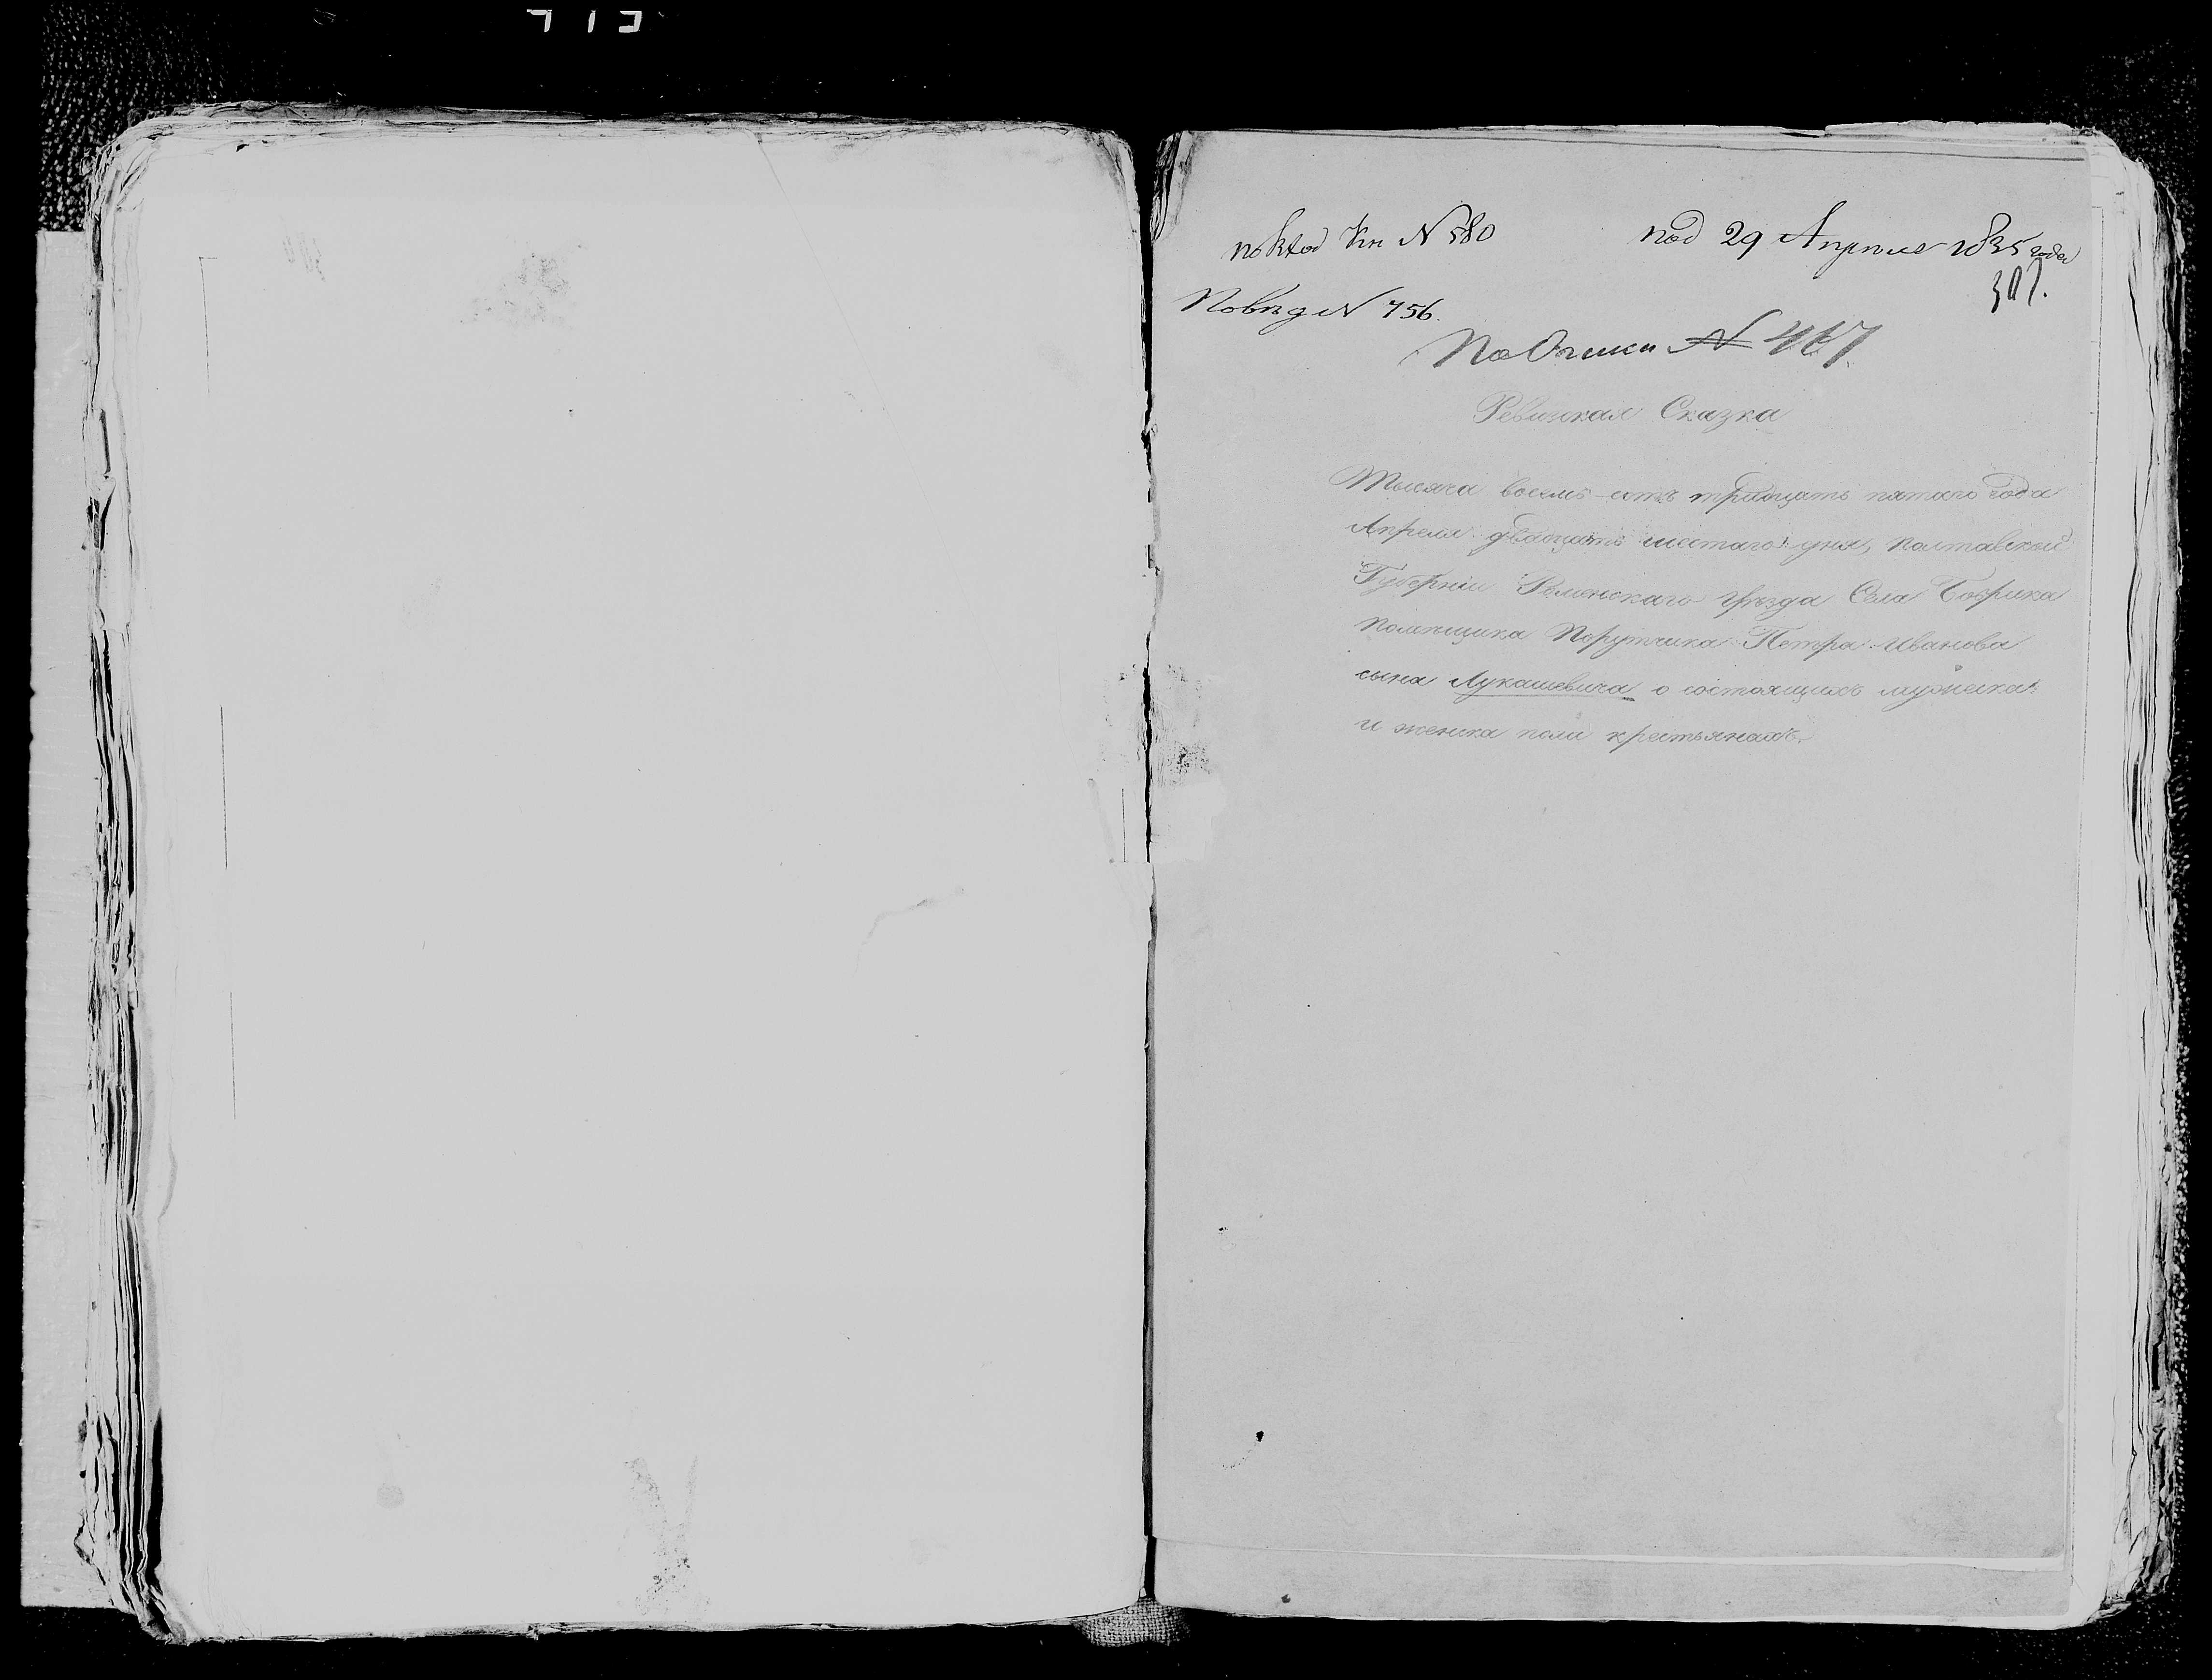 по вход Кн N 580
под 29 Апреля 1835 года
307.
По вед N 756.
По Описи N 467
Ревизская Сказка
Тысяча восемь-сотъ тридцать пятаго года
Апреля двадцать шестаго дня, Полтавской
Губерніи Роменскаго уѣзда Села Бобрика
Помѣщика Порутчика Петра Иванова
сына Лукашевича о состоящихъ мужеска
и женска пола крестьянахъ.